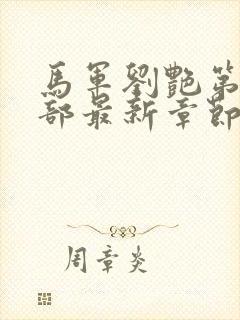 馬軍劉艷第
部最新章節
周章炎